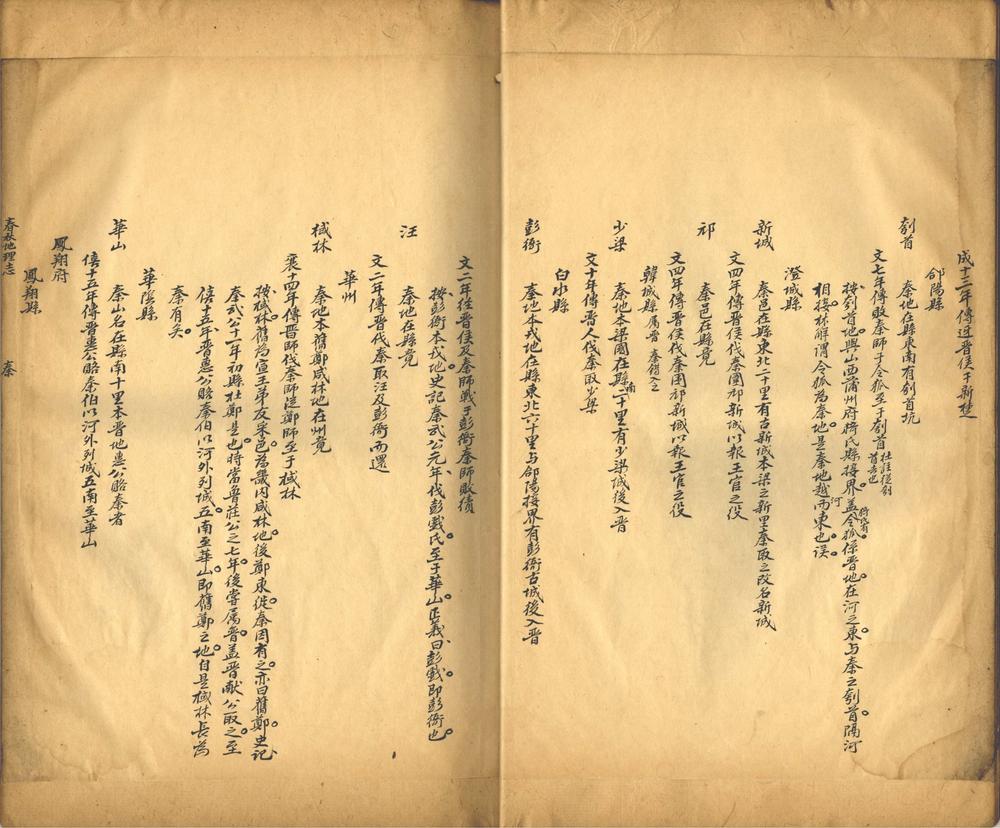 成十三年傳迓晉侯于新楚
郃陽縣
刳首
秦地在縣東南有刳首坑
文七年傳敗秦師于令狐至于刳首杜註從刳首去也
按刳首地與山西蒲州府猗氏縣接界蓋令狐猗氏有係晉地在河之東與秦之刳首隔河
相接林解謂令狐為秦地是秦地越河而東也誤
澄城縣
新城
秦邑在縣東北二十里有古新城本梁之新里秦取之改名新城
文四年傳晉侯伐秦圍祁新城以報王官之役
祁
秦邑在縣竟
文四年傳晉侯伐秦圍祁新城以報王官之役
韓城縣 屬晉 秦錯入之
少梁
秦地本梁國在縣南二十里有少梁城後入晉
文十年傳晉人伐秦取少梁
白水縣
彭衙
秦地本戎地在縣東北六十里與郃陽接界有彭衙古城後入晉
文二年經晉侯及秦師戰于彭衙秦師敗績
按彭衙本戎地史記秦武公元年伐彭戲氏至于華山正義曰彭戲即彭衙也
汪
秦地在縣竟
文二年傳晉伐秦取汪及彭衙而還
華州
棫林
秦地本舊鄭咸林地在州竟
襄十四年傳晉師伐秦師從鄭師至于棫林
按棫林舊為宣王弟友采邑為畿內咸林地後鄭東徙秦因有之亦曰舊鄭史記
秦武公十一年初縣杜鄭是也時當魯莊公之七年後嘗屬晉蓋晉獻公取之至
僖十五年晉惠公賂秦伯以河外列城五南至華山即舊鄭之地自是棫林長為
秦有矣
華陰縣
華山
秦山名在縣南十里本晉地惠公賂秦者
僖十五年傳晉惠公賂秦伯以河外列城五南至華山
鳳翔府
鳳翔縣
春秋地理志 秦